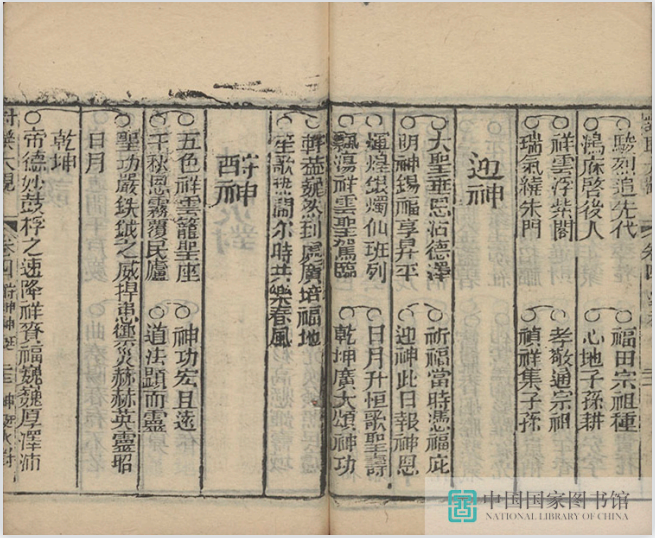 駿烈追先代
福田宗祖種
鴻庥啓後人
心地子孫耕
祥雲浮紫閣
孝敬通宗祖
瑞氣繞朱門
禎祥集子孫
迎神
大聖垂恩沾德澤
祈福當時憑福庇
明神錫福享昇平
迎神此日報神恩
輝煌燭仙班列
日月升恒歌聖壽
飄蕩祥雲聖駕臨
乾坤廣大頌神功
蓋巍然到處廣培福地
笙歌閙尔時共樂春風
酧神
五色祥雲籠聖座
神功宏且遠
千秋恩霧覆民廬
道法顕而靈
聖功嚴鈇鉞之威捍患禦災赫赫英靈昭
日月
帝德妙鼓桴之速降祥賚福巍巍厚澤沛
乾坤
大觀
卷四
中国国家图书馆
NATIONAL LIBRARY OF CHINA